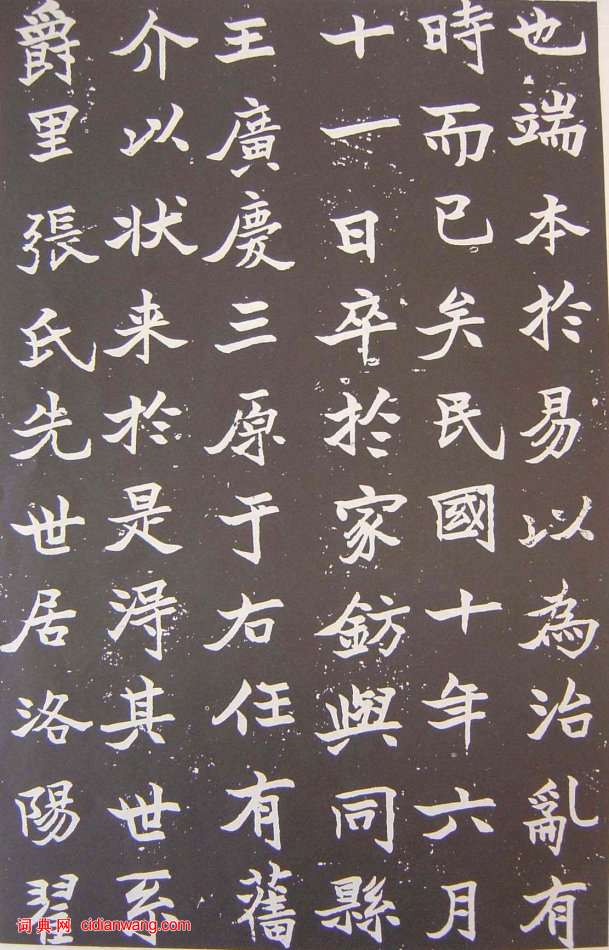 也端本於易以為治亂有
時而已矣民國十年六月
十一日卒於家鈁與同縣
王廣慶三原于右任有舊
介以状来於是淂其世系
爵里張氏先世居洛陽翟
词典网 cidianwang.com